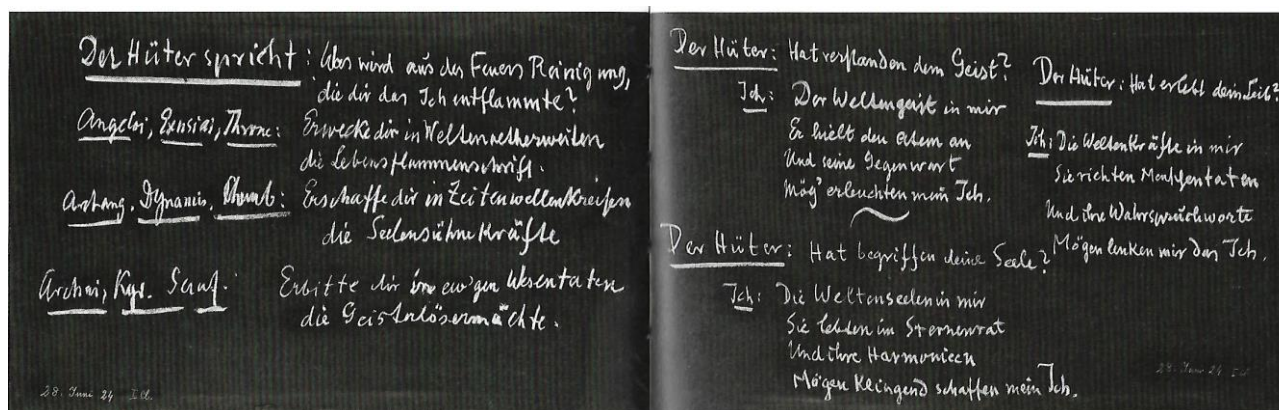 Der Hüter spricht: Was wird aus des Feuers Reinigung,
die dir das Ich entflammte?
Angeloi, Exusiai, Throne: Erwecke dir in Weltenaetherweiten
die Lebensflammenschrift.
Archang. Dynamis, Cherub: Erschaffe dir in Zeitenwellenkreisen
die Seelensühnekräfte
Archai, Kyr. Seraf: Erbitte dir im ew'gen Wesentaten
die Geisterlösermächte.
28. Juni 24 I Cl.
Der Hüter: Hat verstanden dein Geist?
Ich: Der Weltengeist in mir
Er hielt den Atem an
Und seine Gegenwart
Mög' erleuchten mein Ich.
Der Hüter: Hat begriffen deine Seele?
Ich: Die Weltenseelen in mir
Sie lebten im Sternenrat
Und ihre Harmonieen
Mögen klingend schaffen mein Ich.
Der Hüter: Hat erlebt dein Leib?
Ich: Die Weltenkräfte in mir
Sie richten Menschentaten
Und ihre Wahrspruchworte
Mögen lenken mir das Ich.
28. Juni 24 I Cl.